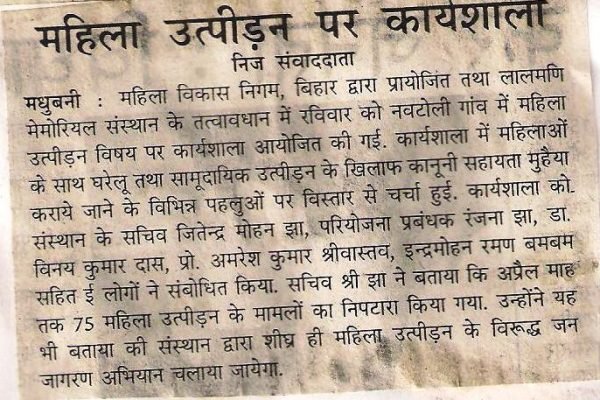 महिला उत्पीड़न पर कार्यशाला
निज संवाददाता
मधुबनी : महिला विकास निगम, बिहार द्वारा प्रायोजित तथा लालमणि
मेमोरियल संस्थान के तत्वावधान में रविवार को नवटोली गांव में महिला
उत्पीड़न विषय पर कार्यशाला आयोजित की गई. कार्यशाला में महिलाओं
के साथ घरेलू तथा सामूदायिक उत्पीड़न के खिलाफ कानूनी सहायता मुहैया
कराये जाने के विभिन्न पहलुओं पर विस्तार से चर्चा हुई. कार्यशाला को
संस्थान के सचिव जितेन्द्र मोहन झा, परियोजना प्रबंधक रंजना झा, डा.
विनय कुमार दास, प्रो. अमरेश कुमार श्रीवास्तव, इन्द्रमोहन रमण बमबम
सहित ई लोगों ने संबोधित किया. सचिव श्री झा ने बताया कि अप्रैल माह
तक 75 महिला उत्पीड़न के मामलों का निपटारा किया गया. उन्होंने यह
भी बताया की संस्थान द्वारा शीघ्र ही महिला उत्पीड़न के विरूद्ध जन
जागरण अभियान चलाया जायेगा.